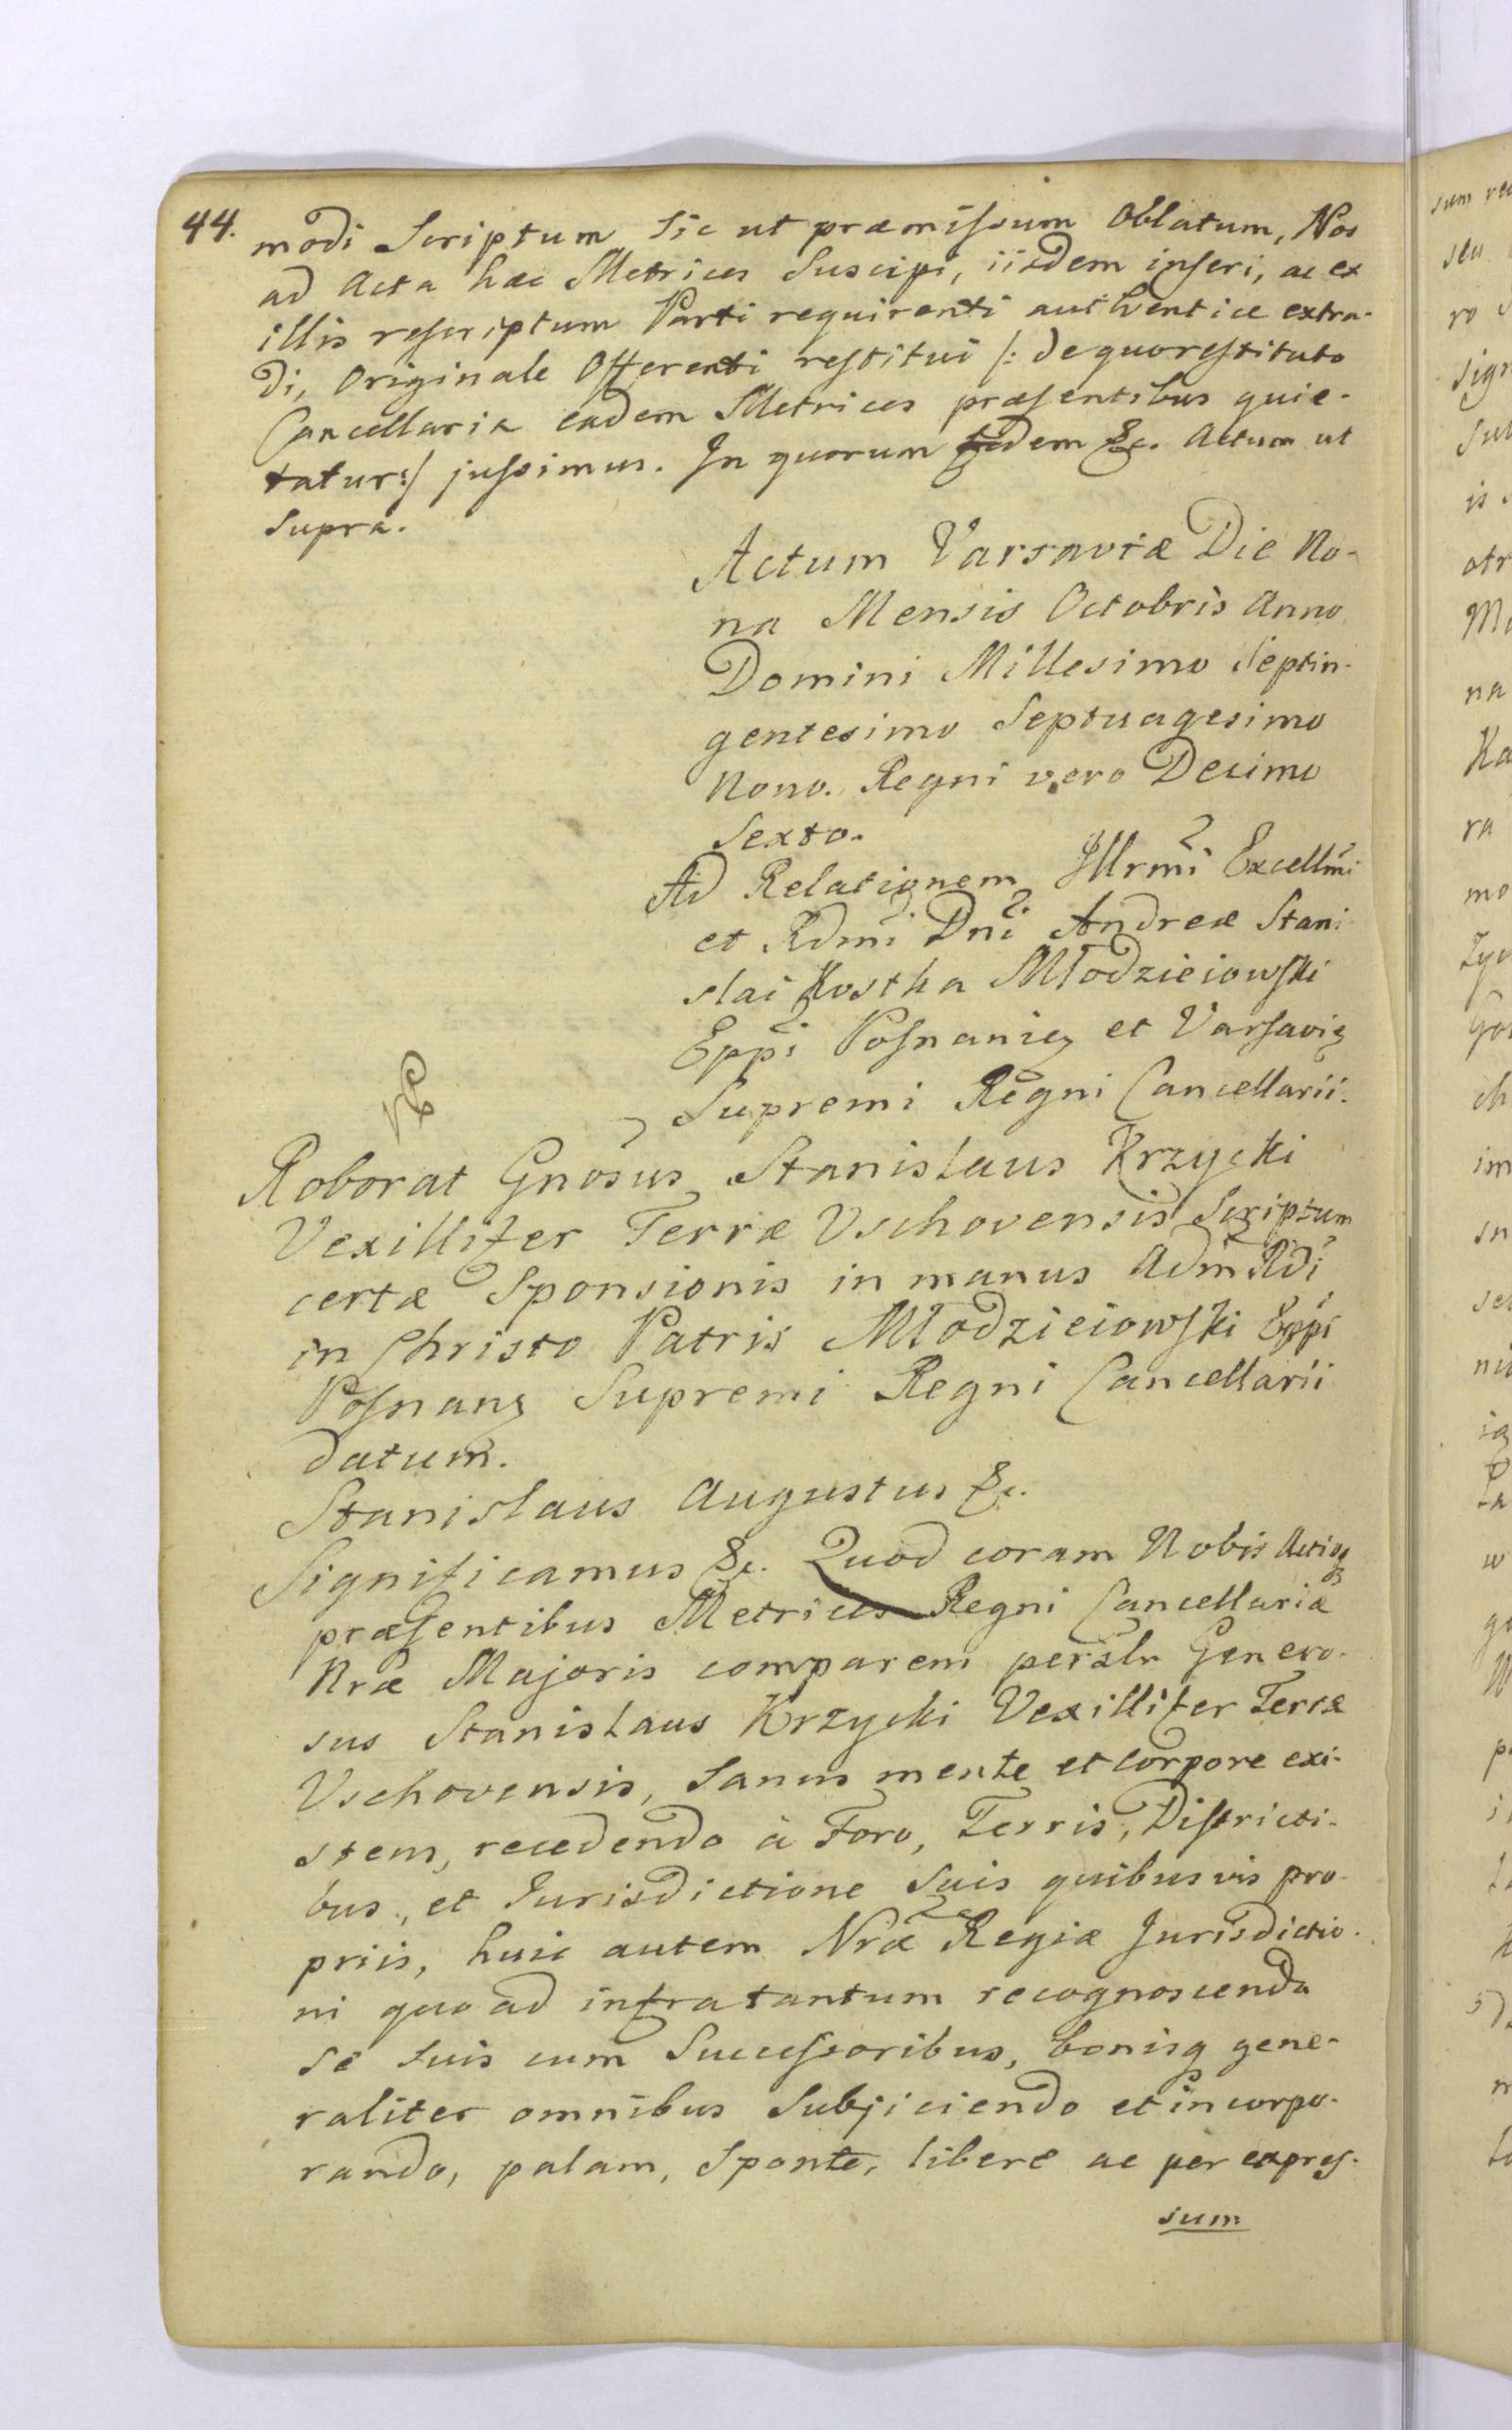 44.
modi Scriptum Sic ut præmissum Oblatum, Nos
ad Acta hæc Metrices Suscipi, iisdem inseri, ac ex
illis rescriptum Parti requirenti authentice extra-
di, Originale Offerenti restitui /: de quo restituto
Cancellaria eadem Metrices præsentibus quie-
tatur:/ jussimus. In quorum fidem &c. Actum ut
Supra.
Actum Varsaviæ Die No-
na Mensis Octobris Anno
Domini Millesimo Septin-
gentesimo Septuagesimo
Nono. Regni vero Decimo
Sexto.
Ad Relationem Illrmi Excellmi
et Rdmi Dni Andreæ Stani-
slai Kostka Młodzieiowski
Eppi Posnanię et Varsavię
Supremi Regni Cancellarii.
Roborat Gnosus Stanislaus Krzycki
Vexillifer Terræ Vschovensis Scriptum
certæ Sponsionis in manus Adm Rdi
in Christo Patris Młodzieiowski Eppi
Posnanę Supremi Regni Cancellarii
datum.
Stanislaus Augustus &c.
Significamus &c. Quod coram Nobis Actisq
præsentibus Metrices Regni Cancellariæ
Nræ Majoris comparens perslr Genero-
sus Stanislaus Krzycki Vexillifer Terræ
Vschovensis, Sanus mente et Corpore exi-
stens, recedendo à Foro, Terris, Districti-
bus, et Jurisdictione Suis quibusvis pro-
priis, huic autem Nræ Regiæ Jurisdictio-
ni quo ad infra tantum recognoscenda
se suis cum Successoribus, bonisq gene-
raliter omnibus Subjiciendo et incorpo-
rando, palam, Sponte, libere ac per expres-
sum